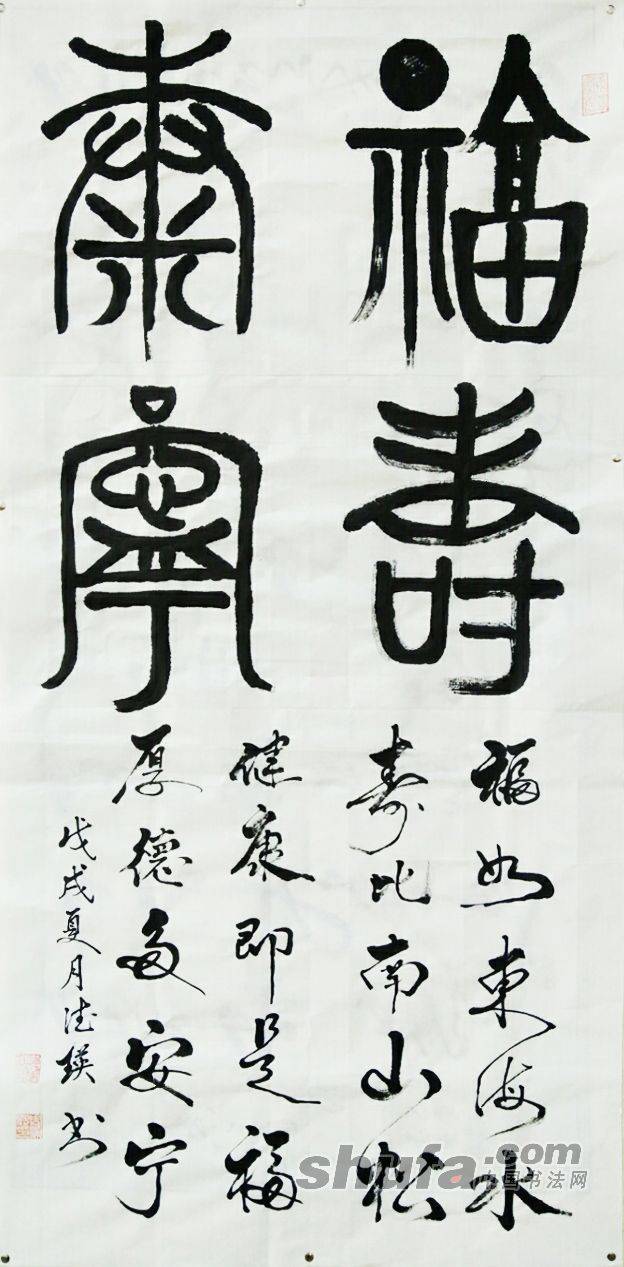 福壽
康寧
福如東海水
壽比南山松
健康即是福
厚德多安宁
戊戌夏月德瑛书
shufa.com
中国书法网